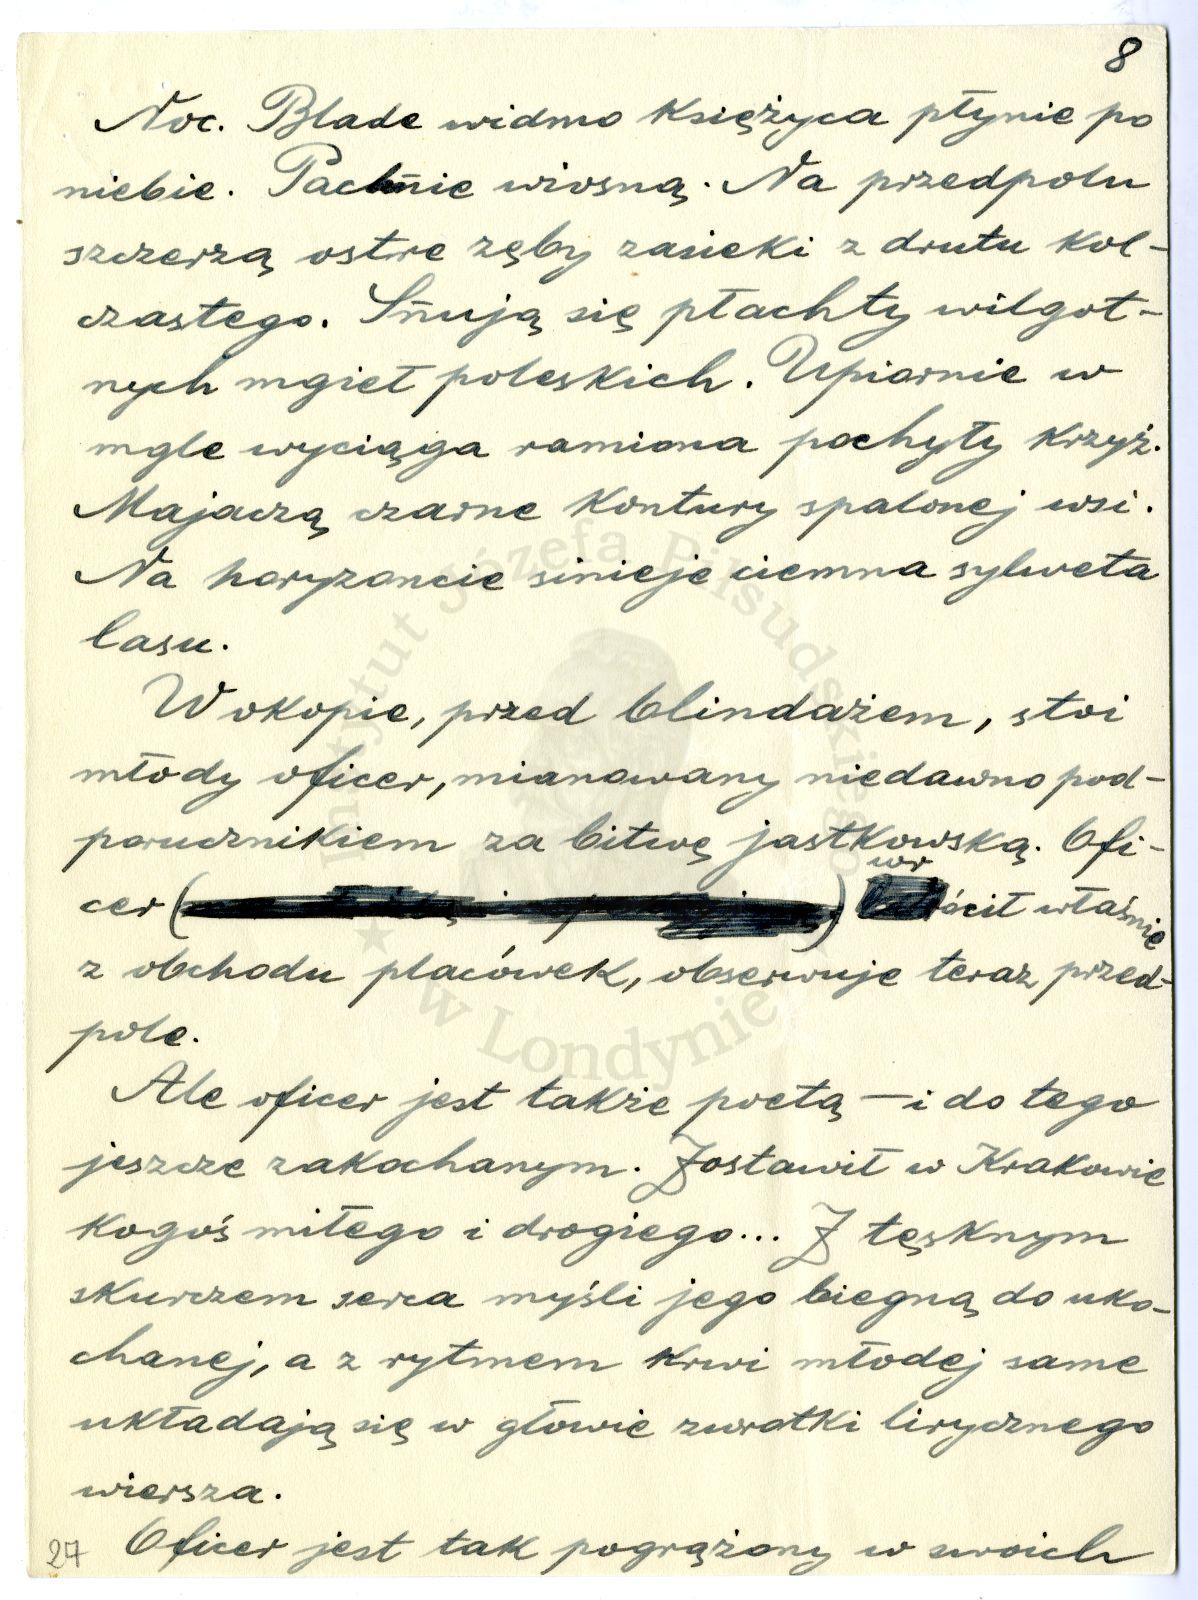 8
Noc. Blade widmo księżyca płynie po
niebie. Pachnie wiosną. Na przedpolu
szczerzą ostre zęby zasieki z drutu kol-
czastego. Snują się płachty wilgot-
nych mgieł poleskich. Upiornie w
mgle wyciąga ramiona pochyły krzyż.
Majaczą czarne kontury spalonej wsi.
Na horyzoncie sinieje ciemna sylweta
lasu.
W okopie, przed blindażem, stoi
młody oficer, mianowany niedawno pod-
porucznikiem za bitwę jastkowską. Ofi-
cer ( ) wrócił właśnie
z obchodu placówek, obserwuje teraz przed-
pole.
Ale oficer jest także poetą — i do tego
jeszcze zakochanym. Zostawił w Krakowie
kogoś miłego i drogiego... Z tęsknym
skurczem serca myśli jego biegną do uko-
chanej, a z rytmem krwi młodej same
układają się w głowie zwrotki lirycznego
wiersza.
27 Oficer jest tak pogrążony w swoich
Instytut Józefa Piłsudskiego
★ w Londynie